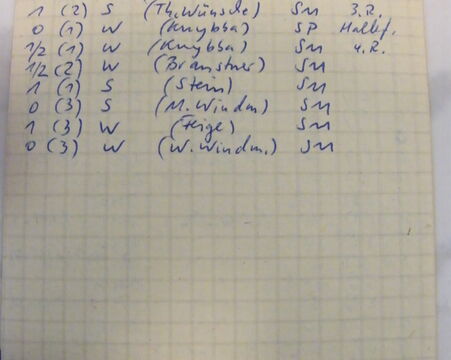 1 (2) S (Th. Wünsche) SM 3.R.
0 (1) W (Knybba) SP Halbf.
1/2 (1) W (Knybba) SM 4.R.
1/2 (2) W (Branstner) SM
1 (1) S (Stein) SM
0 (3) S (M. Windm.) SM
1 (3) W (Feige) SM
0 (3) W (W. Windm.) SM